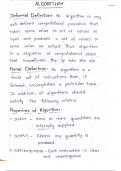 ALGORITHM
Informal Definition: An algorithm is any
well-defined computational procedure that
takes some value or set of values as
input and produces a set of values or
some value as output. Thus algorithm
is a sequence of computational steps
that transforms the i/p into the o/p.
Formal Definition: An Algorithm is a
finite set of instructions that, if
followed, accomplishes a particular task.
In addition, all algorithms should
satisfy the following criteria.
Properties of Algorithm:
INPUT → Zero or more quantities are
externally supplied.
OUTPUT → At least one quantity is
produced.
DEFINITENESS → Each instruction is clear
and unambiguous.